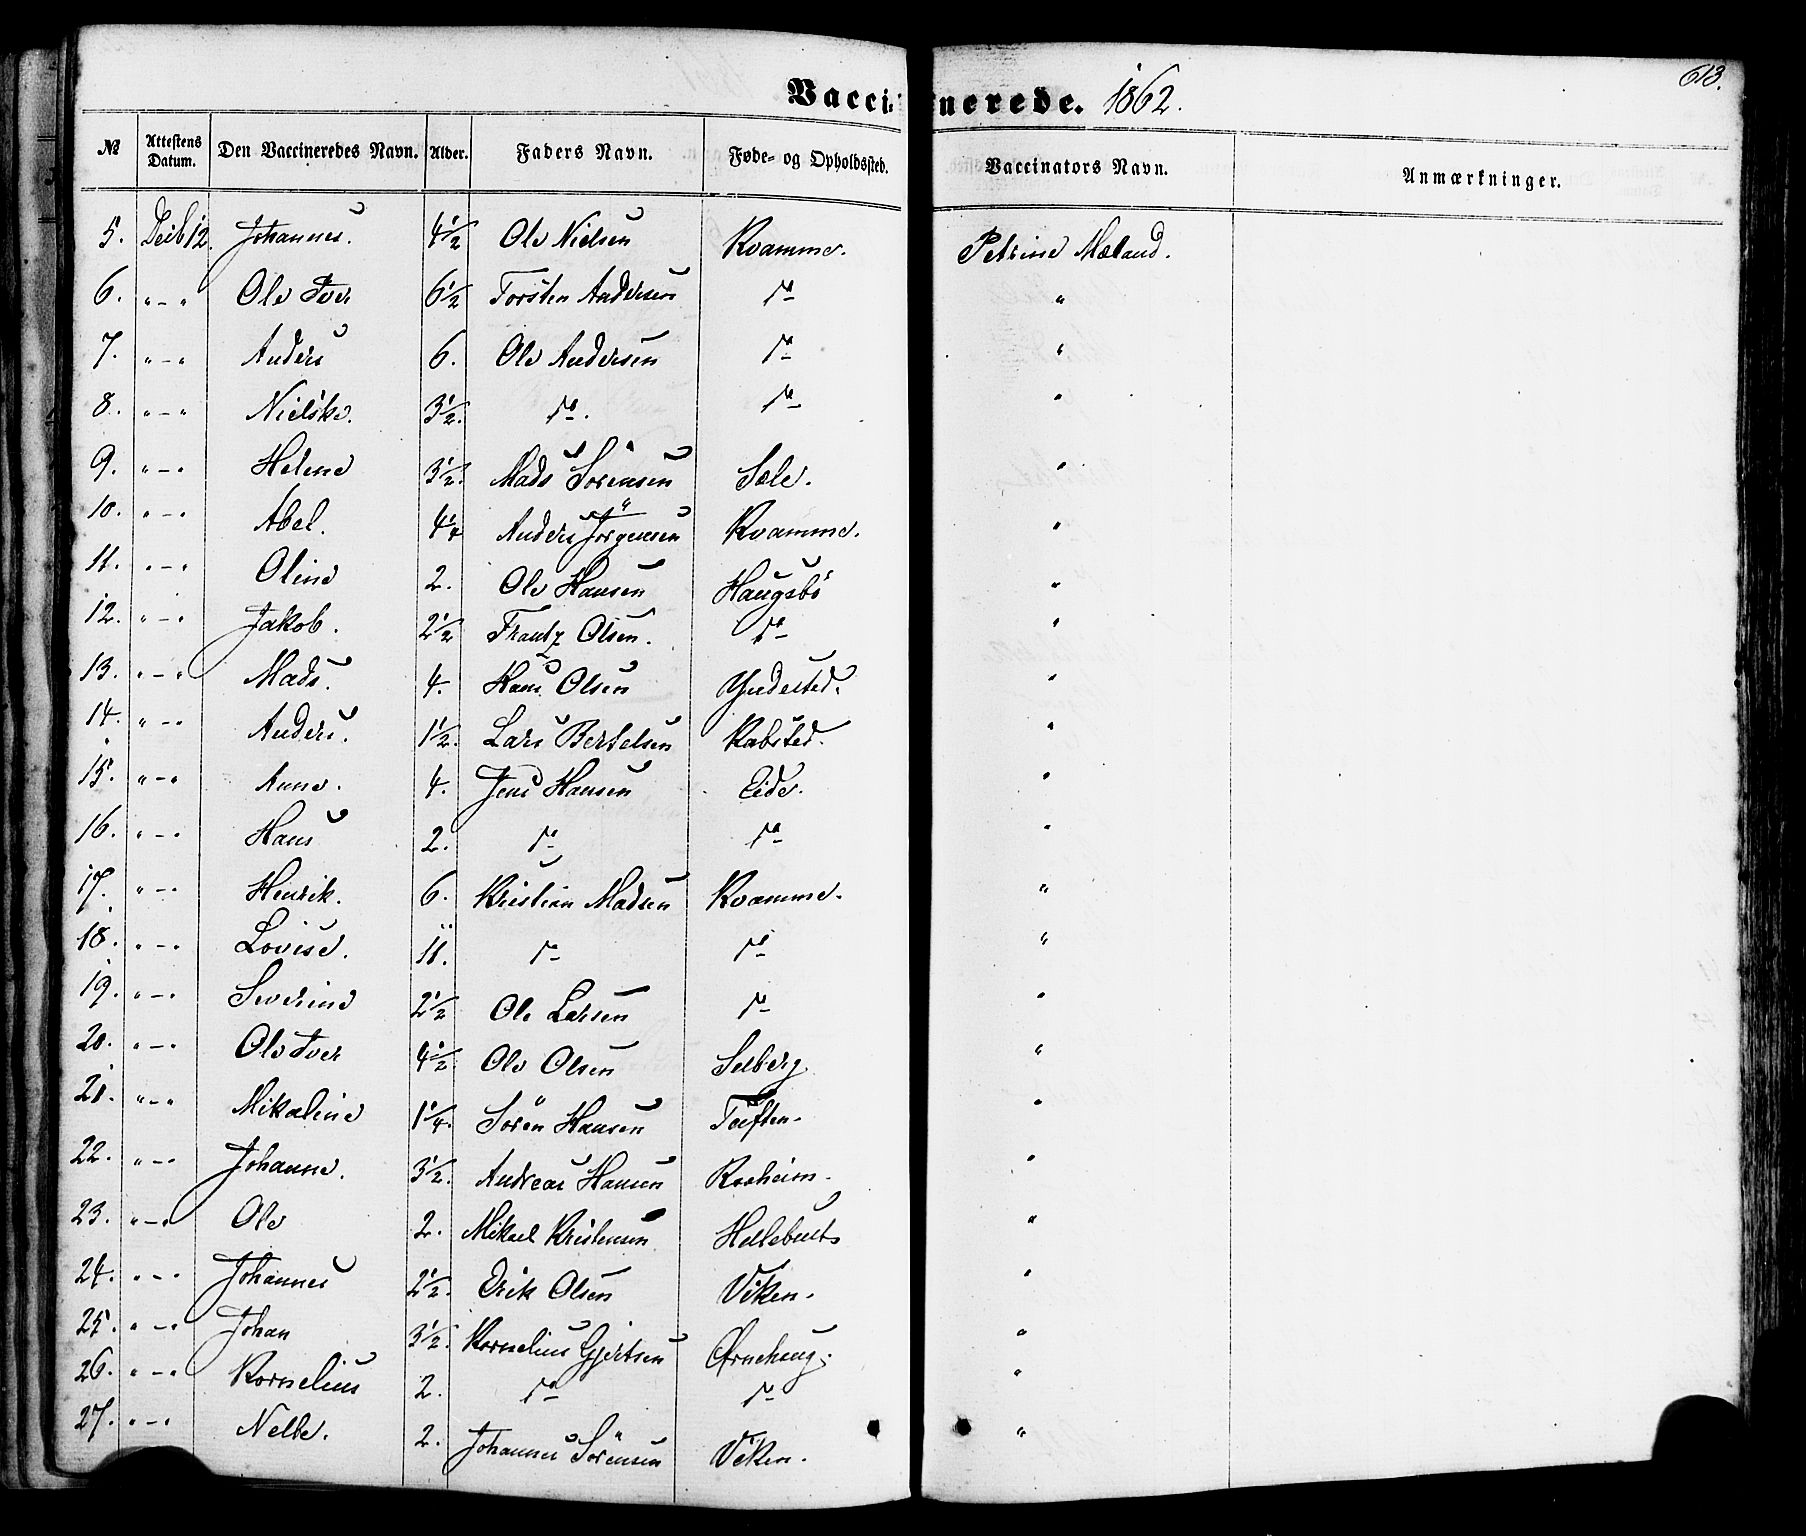 613.
Vaccinerede. 1862.
№ Attestens Datum. Den Vaccineredes Navn. Alder. Faders Navn. Føde- og Opholdssted. Vaccinators Navn. Anmærkninger.
5. 12 Johannes. 4½ Ole Nielsen Kvamme. Petrine Mæland.
6. " - " Ole Iver 6½ Torsten Andersen do "
7. " - " Anders 6. Ole Andersen do "
8. " - " Nielske. 3½. do. do "
9. " - " Helene 3½. Mads Sörensen Sæle. "
10. " - " Abel. 4¼ Anders Jörgensen Kvamme. "
11. " - " Oline 2. Ole Hansen Haugsbö "
12. " - " Jakob. 2½ Frantz Olsen. do "
13. " - " Mads. 4. Hans Olsen Yndested. "
14. " - " Anders. 1½. Lars Bertelsen Rabsted. "
15. " - " Anne. 4. Jens Hansen Eide. "
16. " - " Hans 2. do do "
17. " - " Henrik. 6. Kristian Madsen Kvamme. "
18. " - " Lovise. 11. do do "
19. " - " Severine 2½ Ole Larsen do "
20. " - " Ole Iver 4½ Ole Olsen Selberg "
21. " - " Mikaline 1¼. Sören Hansen "
22. " - " Johanne. 3½. Andreas Hansen "
23. " - " Ole 2. Mikael Kristensen "
24. " - " Johannes 2½. Erik Olsen Viken. "
25. " - " Johan 3½. Kornelius Gjertsen Ørnehaug. "
26. " - " Kornelius 2. do do "
27. " - " Nelle. 2. Johannes Sörensen Viken. "